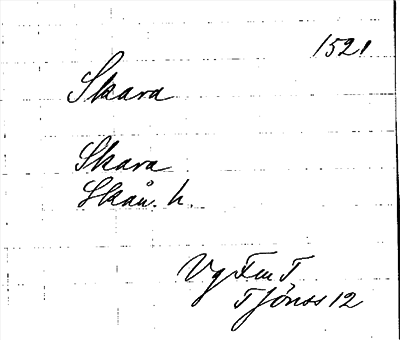 1521
Skara
Skara
Skån. h.
Vg Fm T
T Jönss 12